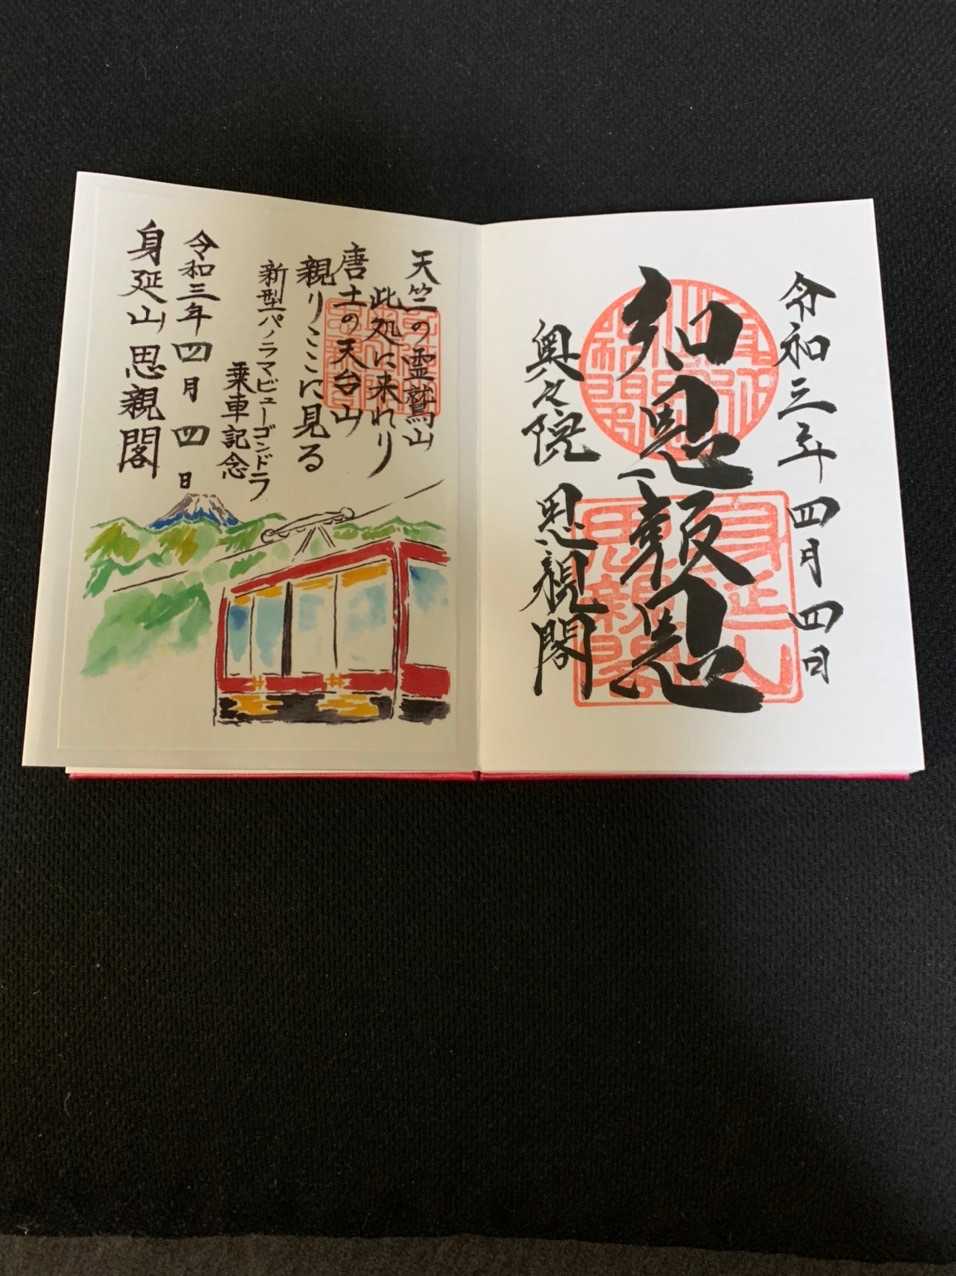 令和三年 四月 四日
知恩報恩
奥之院 思親閣
身延山
思親閣
天竺の霊鷲山
此処に来れり
唐土の天台山
親りここに見る
新型パノラマビューゴンドラ
乗車記念
令和三年 四月 四日
身延山 思親閣